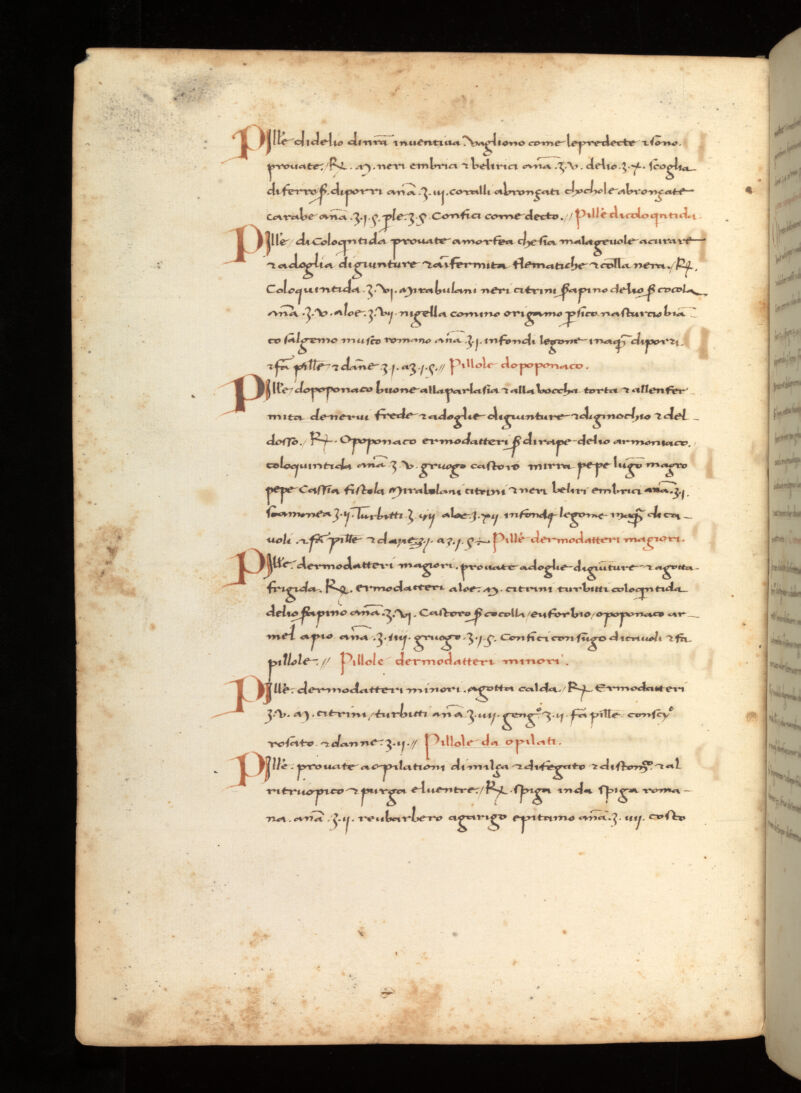 Pille didelio dinrã inventiva. Vagliono come lepredecte ⁊ sõno.
provate. / R. M. neri embrici ⁊ belirici anã .ʒ.v. delio.ʒ.x. scoglia
diferro diporri anã.ʒ.iij. coralli abronçati chochole abronçate
carabe anã.ʒ.j.ς. ple.ʒ.ς. Confici come decto. // Pille dicoloq̃ntida.
Pille di Coloq̃ntida provate amorfea che sia malagevole acurare
⁊ adoglia digiunture ⁊ aĩfermita flematiche ⁊ cõlla nera. / R.
Coloquintida.ʒ.vj. Mirabulani neri citrini serapino delio cocola
anã.ʒ.v. aloe.ʒ.vij. nigella comino origamo psico nasturcio biã
co salgemo musco romano anã ʒ.j. infondi legome inaq̃ diporri.
⁊ fã pille ⁊ dãne ʒ.j. aʒ.j.ς. // Pillole dopoponaco.
Pille dopoponaco buone alla parlasia ⁊ alla boccha torta ⁊ allenfer
mita denervi frede ⁊ adoglie digiunture ⁊ diginochio ⁊ del
dosso. / R. Opoponaco ermodatteri dirape delio armoniaco.
coloquintida anã ʒ v. gruogo castoro mirra pepe lũgo magro
pepe Cassia fistola Mirabolani citrini ⁊ neri beliri embrici anã.ʒj.
scamonea ʒ.ij. Turbitti ʒ.iij aloe.ʒ.xij infondi legome. inaq̃ dica
voli. ⁊ fã pille ⁊ dane ʒ.j. aʒ.j.ς Pille dermodatteri magiori.
Pille. dermodatteri magiori. provate adoglie digiũture ⁊ agotta
frigida. R. ermodatteri aloe. M. citrini turbitti coloq̃ntida
delio serapino anã.ʒ.vj. Castoro cocolla / euforbio / opoponaco ar
mel apio anã.ʒ.iiij. gruogo.ʒ.j.ς. Confici con sugo dicavoli ⁊ fã
pillole. // Pillole dermodatteri minori.
Pille. dermodatteri minori. agotta calda. / R. Ermodatteri
ʒ.v. M. citrini / turbitti anã ʒ.iiij. gengo ʒ.ij fã pille conscyo
rosato ⁊ danne.ʒ.ij. // Pillole da opilati.
Pille. provate aopilationi dimilça ⁊ difegato ⁊ distomgo. ⁊ al
ritruopico ⁊ purga eluentre. / R. spiga inda spiga roma
na. anã.ʒ.ij. reubarbero agarigo epitamo anã.ʒ. iiij. costo